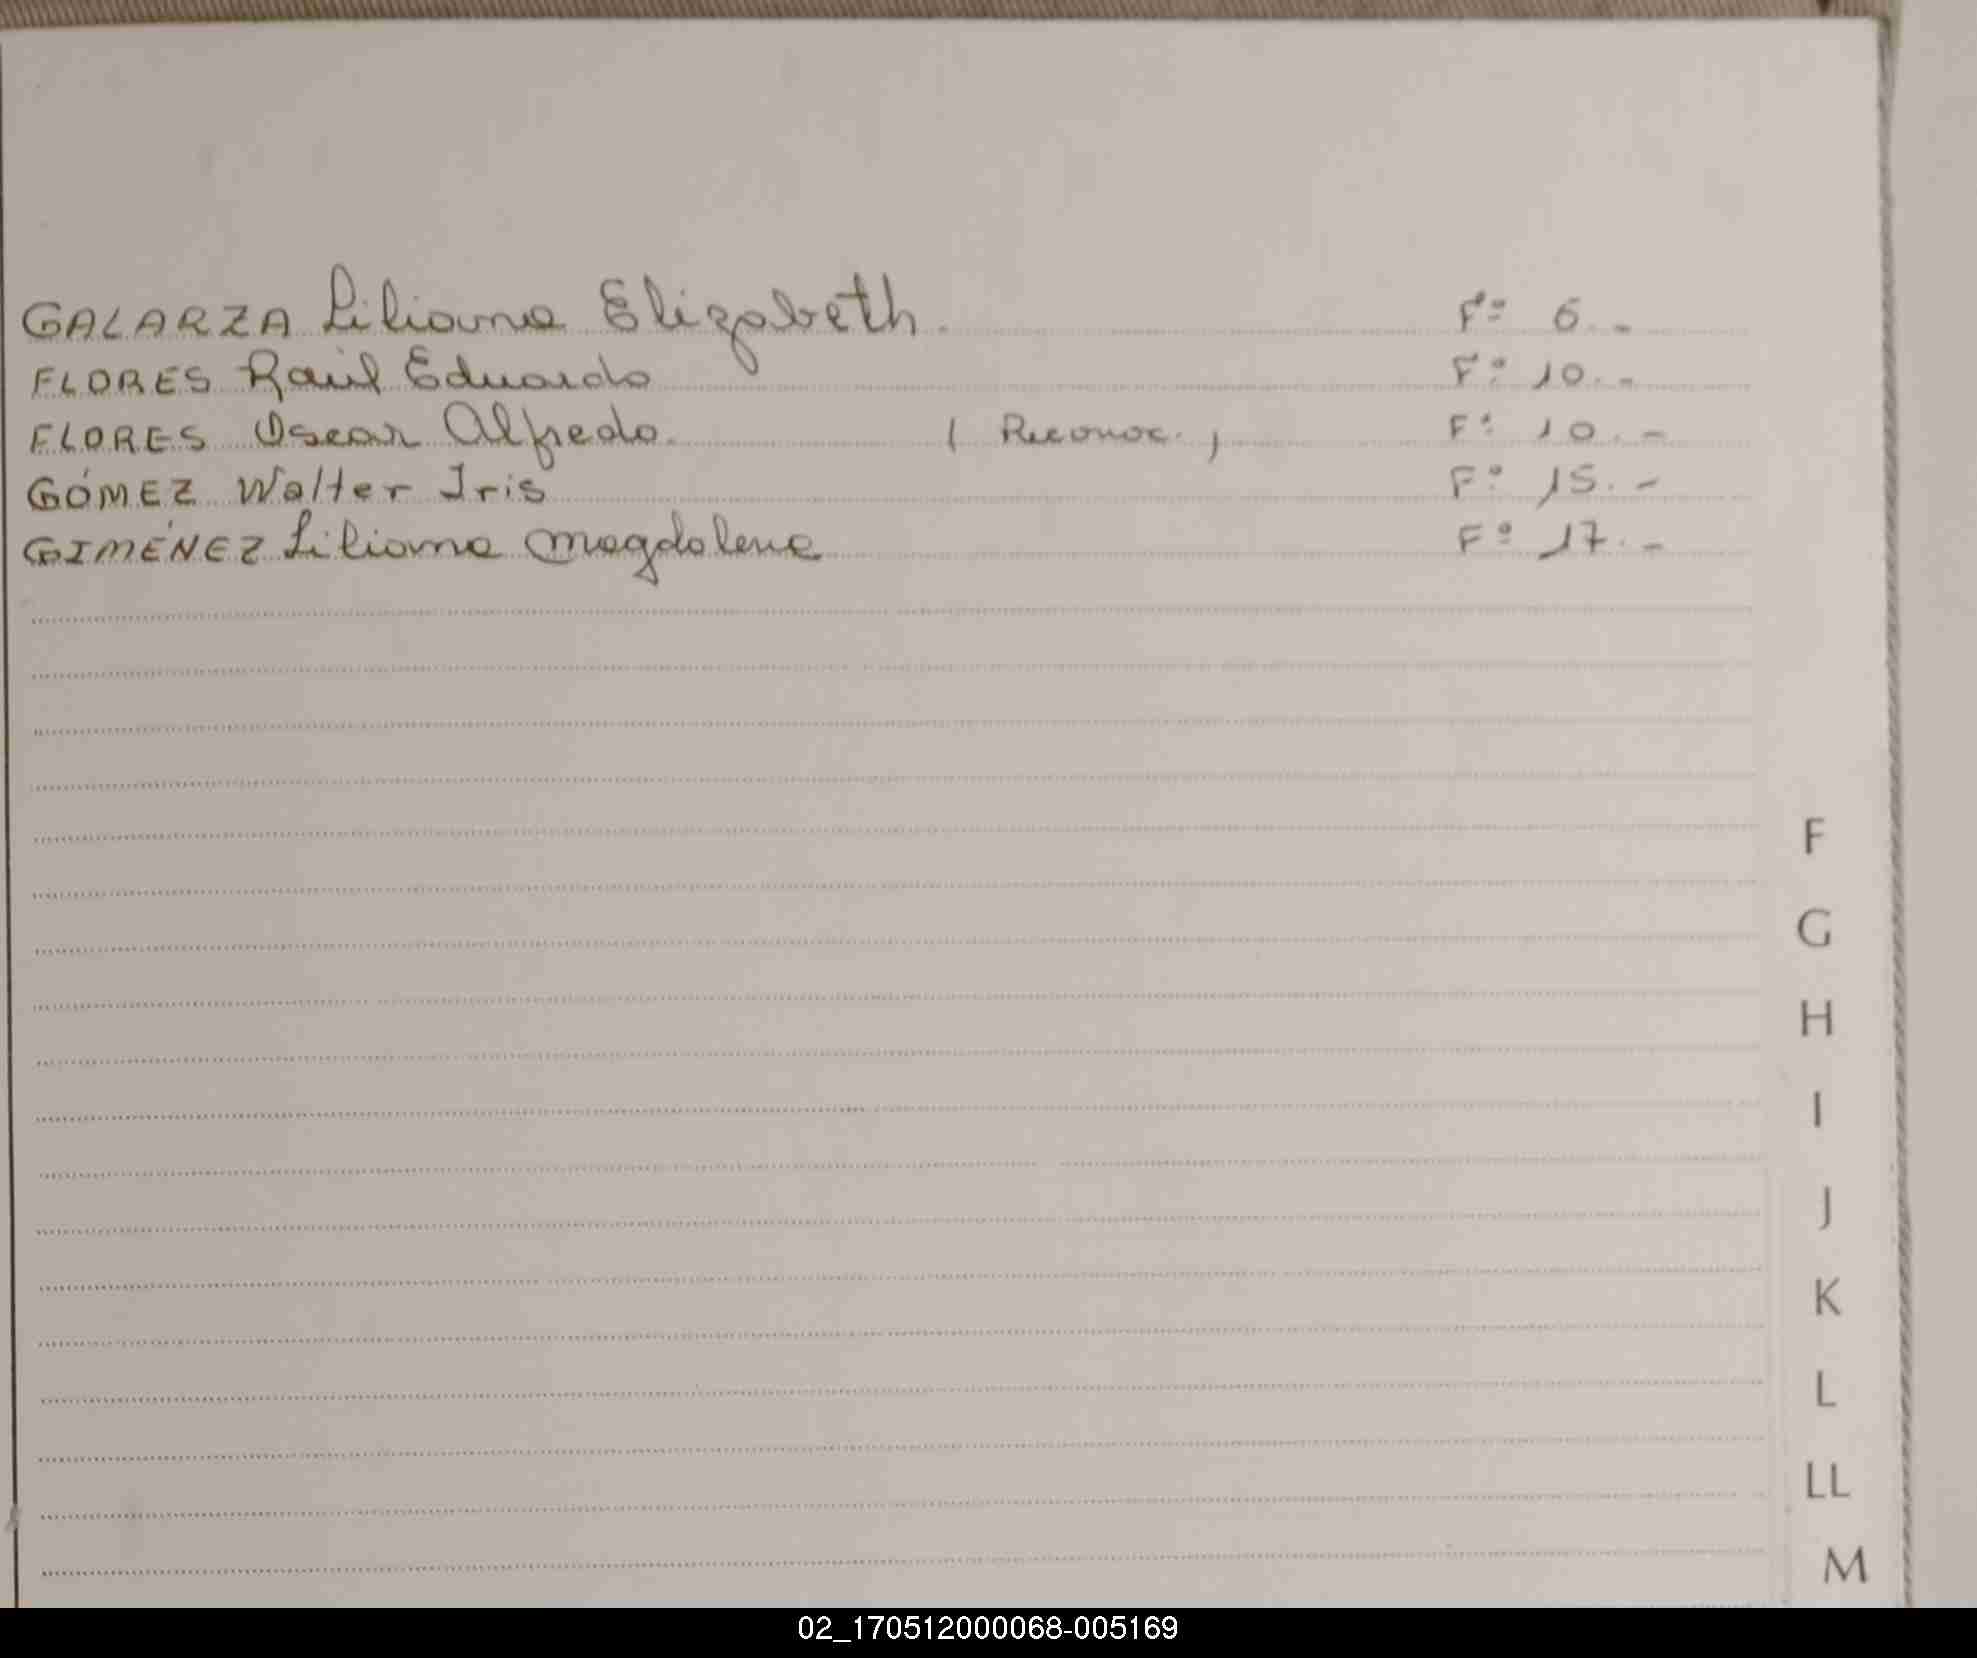 GALARZA Liliana Elizabeth. Fº 6.-
FLORES Raúl Eduardo Fº 10.-
FLORES Oscar Alfredo. ( Reconoc. ) Fº 10.-
GÓMEZ Walter Iris Fº 15.-
GIMÉNEZ Liliana Magdalena Fº 17.-
F
G
H
I
J
K
L
LL
M
02_170512000068-005169